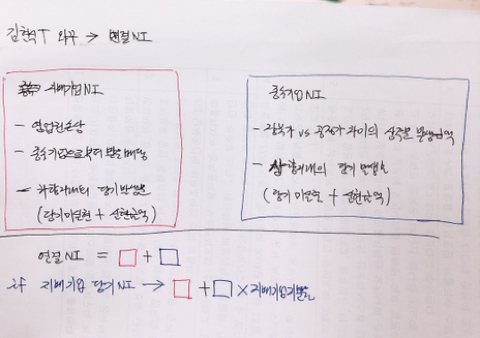 김현식T 와꾸 → 연결NI
지배기업NI
- 영업권손상
- 종속기업으로부터 받은배당
- 하향거래의 당기발생분
(당기미실현 + 실현금액)
종속기업NI
- 장부가 vs 공정가 차이의 상각분 발생금액
- 상향거래의 당기발생분
(당기미실현 + 실현금액)
연결NI = □ + □
지배기업 당기NI → □ + □ × 지배기업지분율